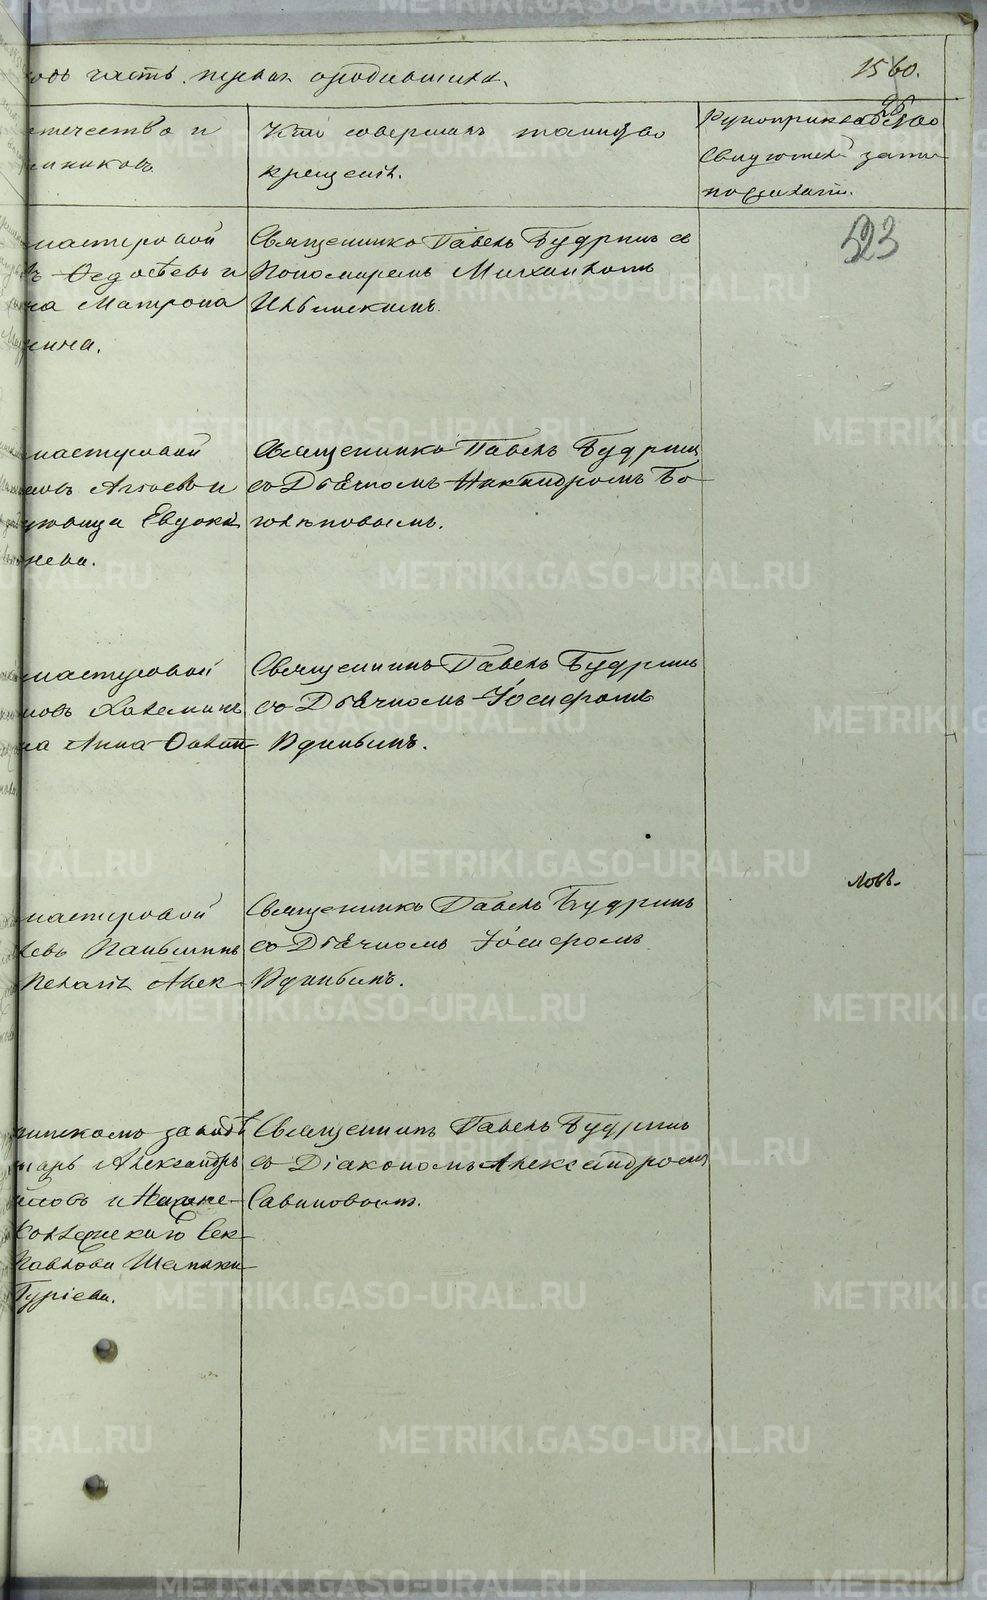 одъ часть первая о родившихся.
1560.
95
течество и
емниковъ.
Кто совершалъ таинство
крещенія.
Рукоприкладство
Свидѣтелей записи
по желанію.
523
мастеровой
въ Ѳедосѣевъ и
на Матрона
ина.
Священникъ Павелъ Будринъ съ
Пономаремъ Михаиломъ
Ильинскимъ.
мастеровой
новъ и
Евдокі
нева.
Священникъ Павелъ Будринъ
съ Дьячкомъ Никандромъ Бо-
голѣповымъ.
мастеровой
новъ
на Анна
Священникъ Павелъ Будринъ
съ Дьячкомъ Іосифомъ
Удинцы
мастеровой
евъ Паньшинъ
Пелагія Алек-
Священникъ Павелъ Будринъ
съ Дьячкомъ Іосифомъ
ловъ.
инскомъ заводѣ
тарь Александръ
иловъ и
Сек-
Павлова
Гуріева.
Священникъ Павелъ Будринъ
съ Діакономъ Александромъ
Савиновымъ.
METRIKI.GASO-URAL.RU